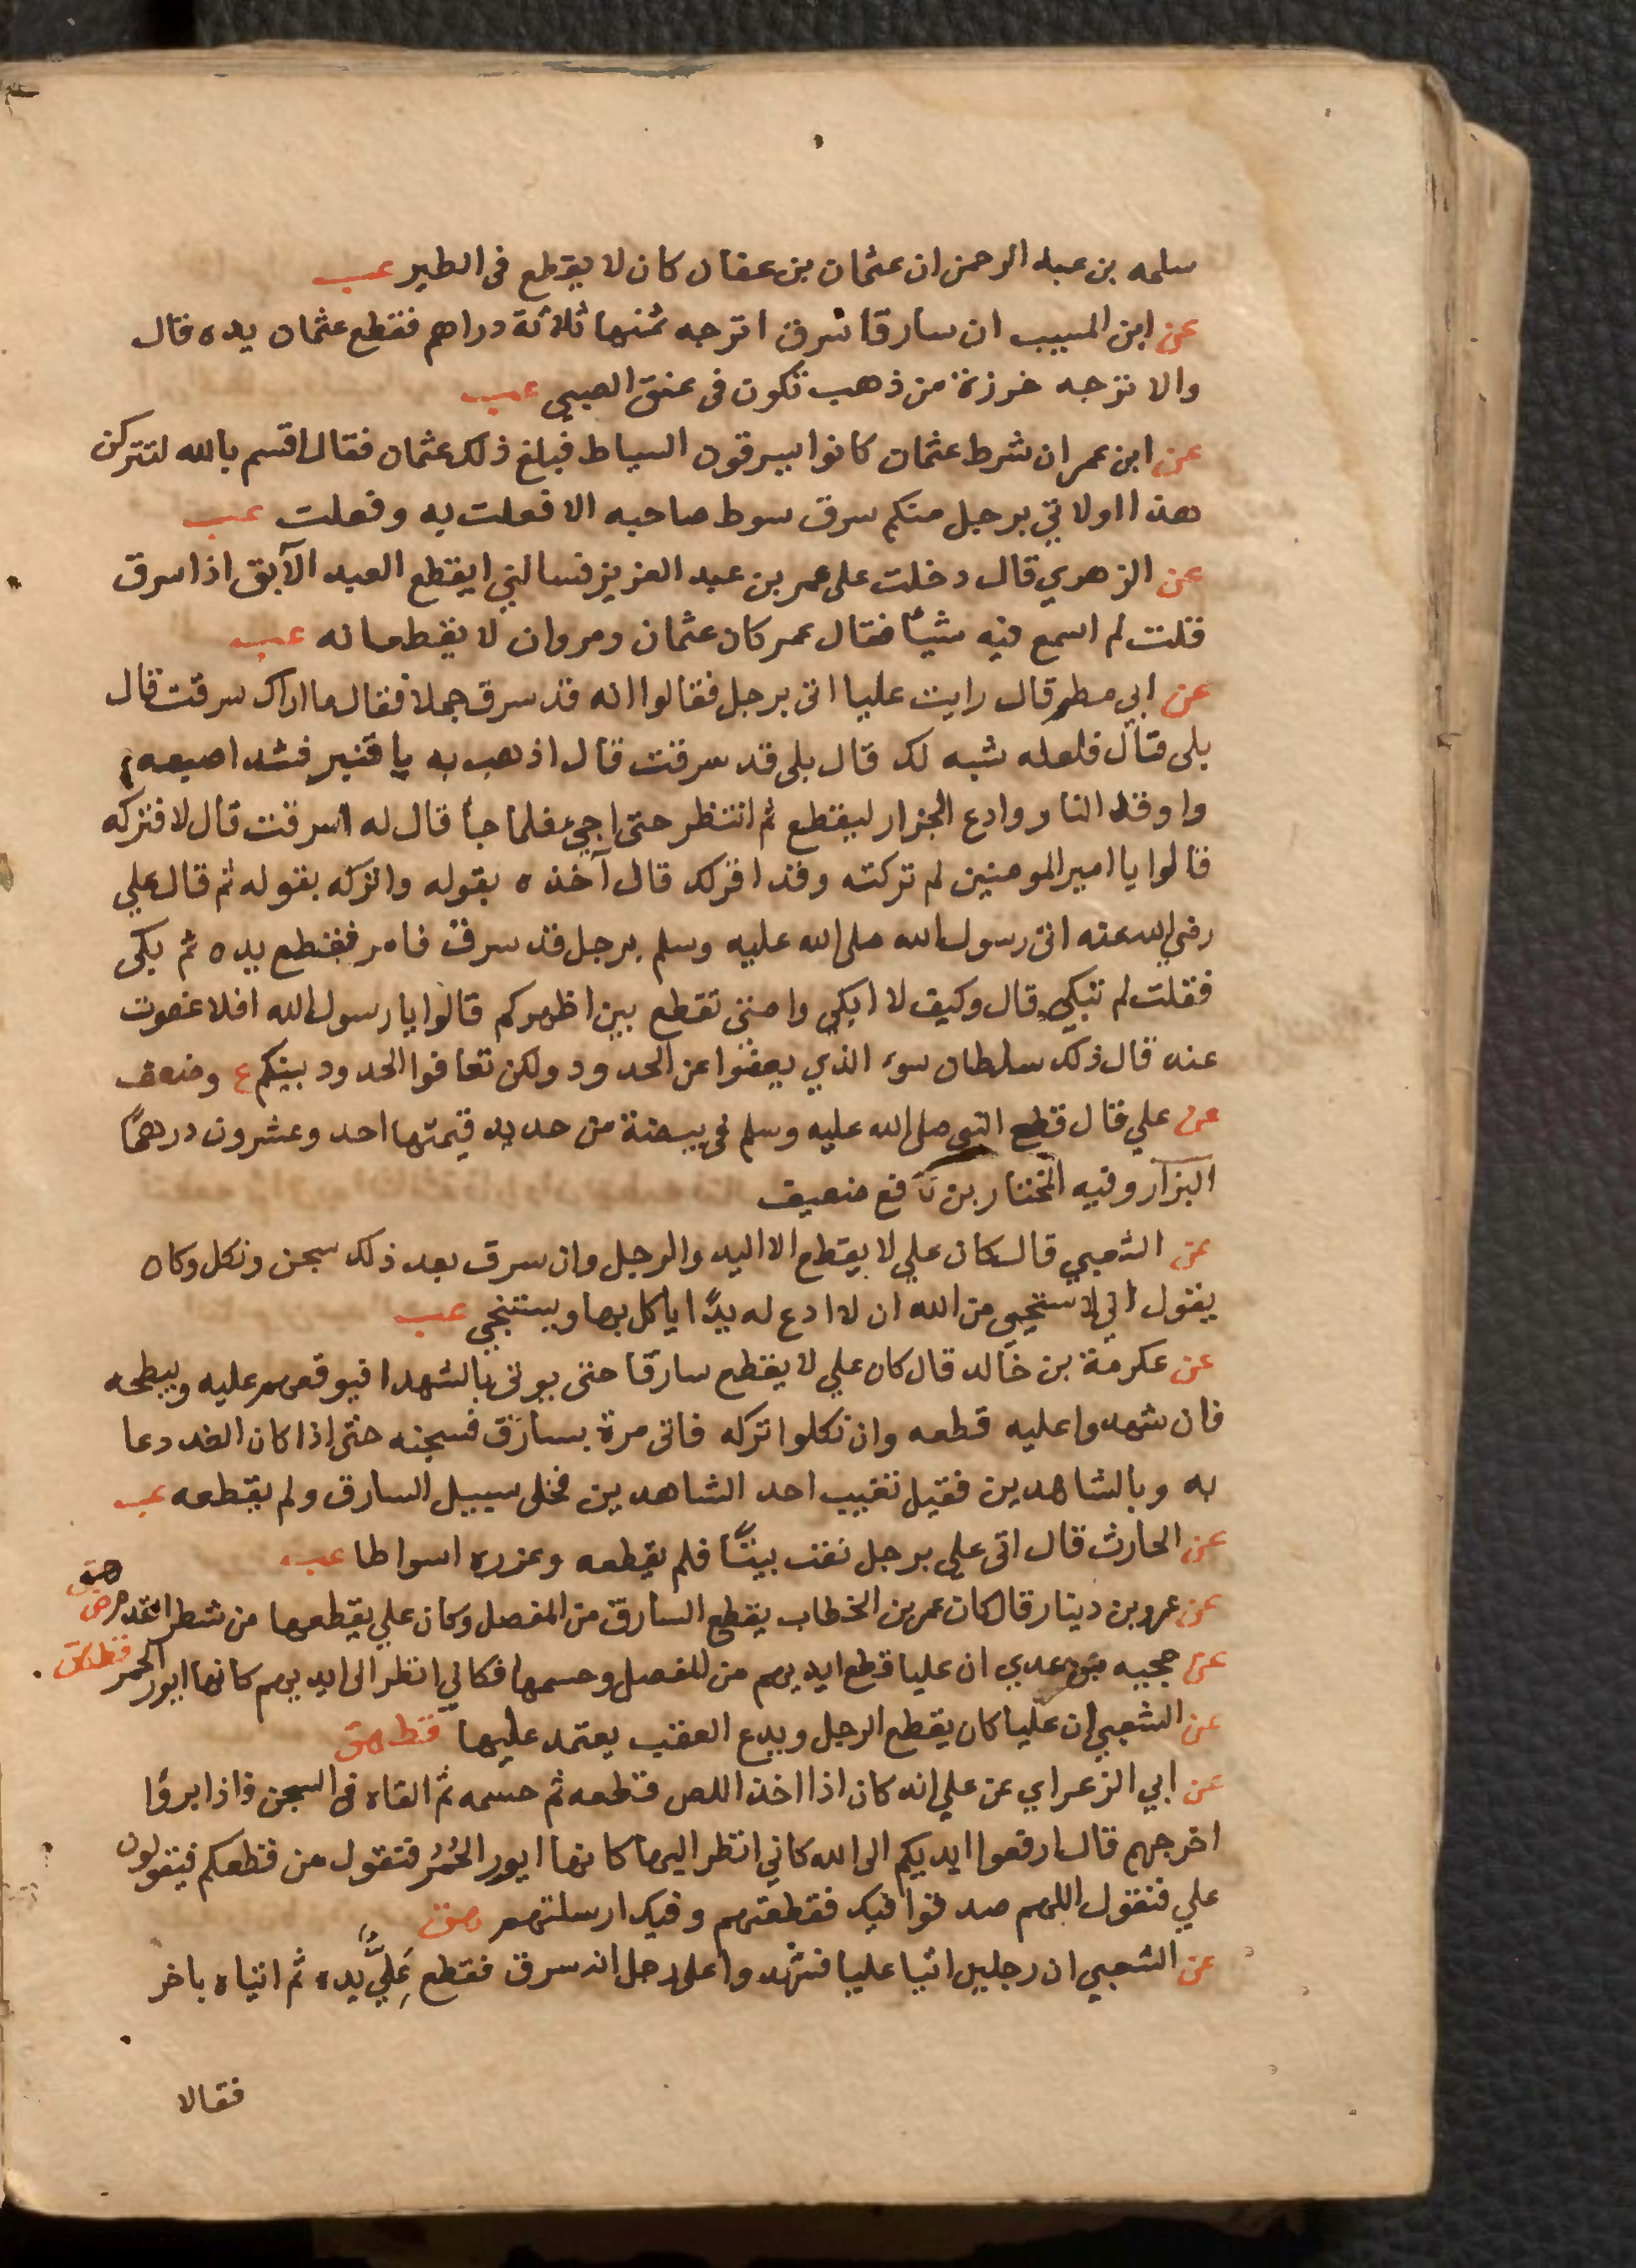 سلمه بن عبد الرحمن ان عثمان بن عفان كان لا يقطع فى الطير عب
عن ابن المسيب ان سارقا سرق اترجه ثمنها ثلاثة دراهم فقطع عثمان يده قال
والاترجه خرزة من ذهب تكون فى عنق الصبي عب
عن ابن عمر ان شرط عثمان كانوا يسرقون السياط فبلغ ذلك عثمان فقال اقسم بالله لتتركن
هذا اولاتي برجل منكم سرق سوط صاحبه الا فعلت به وفعلت عب
عن الزهري قال دخلت على عمر بن عبد العزيز فسالني ايقطع العبد الآبق اذا سرق
قلت لم اسمع فيه شيأ فقال عمر كان عثمان ومروان لا يقطعانه عب
عن ابي مطر قال رايت عليا اتى برجل فقالوا انه قد سرق جملا فقال ما اراك سرقت قال
بلى قال فلعله شبه لك قال بلى قد سرقت قال اذهب به يا قنبر فشد اصبعه
واوقد النار وادع الجزار ليقطع ثم انتظر حتى اجيء فلما جأ قال له اسرقت قال لا فتركه
قالوا يا امير المومنين لم تركته وقد اقر لك قال آخذه بقوله واتركه بقوله ثم قال علي
رضي الله عنه اتى رسول الله صلى الله عليه وسلم برجل قد سرق فامر فقطع يده ثم بكى
فقلت لم تبكي قال وكيف لا ابكي وامتي تقطع بين اظهركم قالوا يا رسول الله افلا عفوت
عنه قال ذلك سلطان سوء الذي يعفوا عن الحدود ولكن تعافوا الحدود بينكم ع وضعف
عن علي قال قطع النبى صلى الله عليه وسلم فى بيضة من حديد قيمتها احد وعشرون درهمًا
البزار وفيه المختار بن نافع ضعيف
عن الشعبي قال كان علي لا يقطع الا اليد والرجل وان سرق بعد ذلك سجن ونكل وكان
يقول اني لا ستحيى من الله ان لا ادع له يدًا ياكل بها ويستنجي عب
عن عكرمة بن خالد قال كان علي لا يقطع سارقا حتى يوتى بالشهدا فيوقعهم عليه ويبطحه
فان شهدوا عليه قطعه وان نكلوا تركه فاتى مرة بسارق فسجنه حتى اذا كان الغد دعا
به وبالشاهدين فقيل تغيب احد الشاهدين فخلى سبيل السارق ولم يقطعه عب
عن الحارث قال اتى علي برجل نقب بيتًا فلم يقطعه وعزره اسواطا عب
عن عمرو بن دينار قال كان عمر بن الخطاب يقطع السارق من المفصل وكان علي يقطعها من شطر القدم
عن حجيه بن عدي ان عليا قطع ايديهم من المفصل وحسمها فكاني انظر الى ايديهم كانها ايور الحمر قط هق
عن الشعبي ان عليا كان يقطع الرجل ويدع العقب يعتمد عليها قط هق
عن ابي الزعراي عن علي انه كان اذا اخذ اللص قطعه ثم حسمه ثم القاه فى السجن فاذا برؤا
اخرجهم قال ارفعوا ايديكم الى الله كاني انظر اليها كانها ايور الحُمُر فتقول من قطعكم فيقولون
علي فتقول اللهم صدقوا فيك فقطعتهم وفيك ارسلتهم هق
عن الشعبي ان رجلين اتيا عليا فشهدوا على رجل انه سرق فقطع عَليٌّ يده ثم اتياه باخر
فقالا